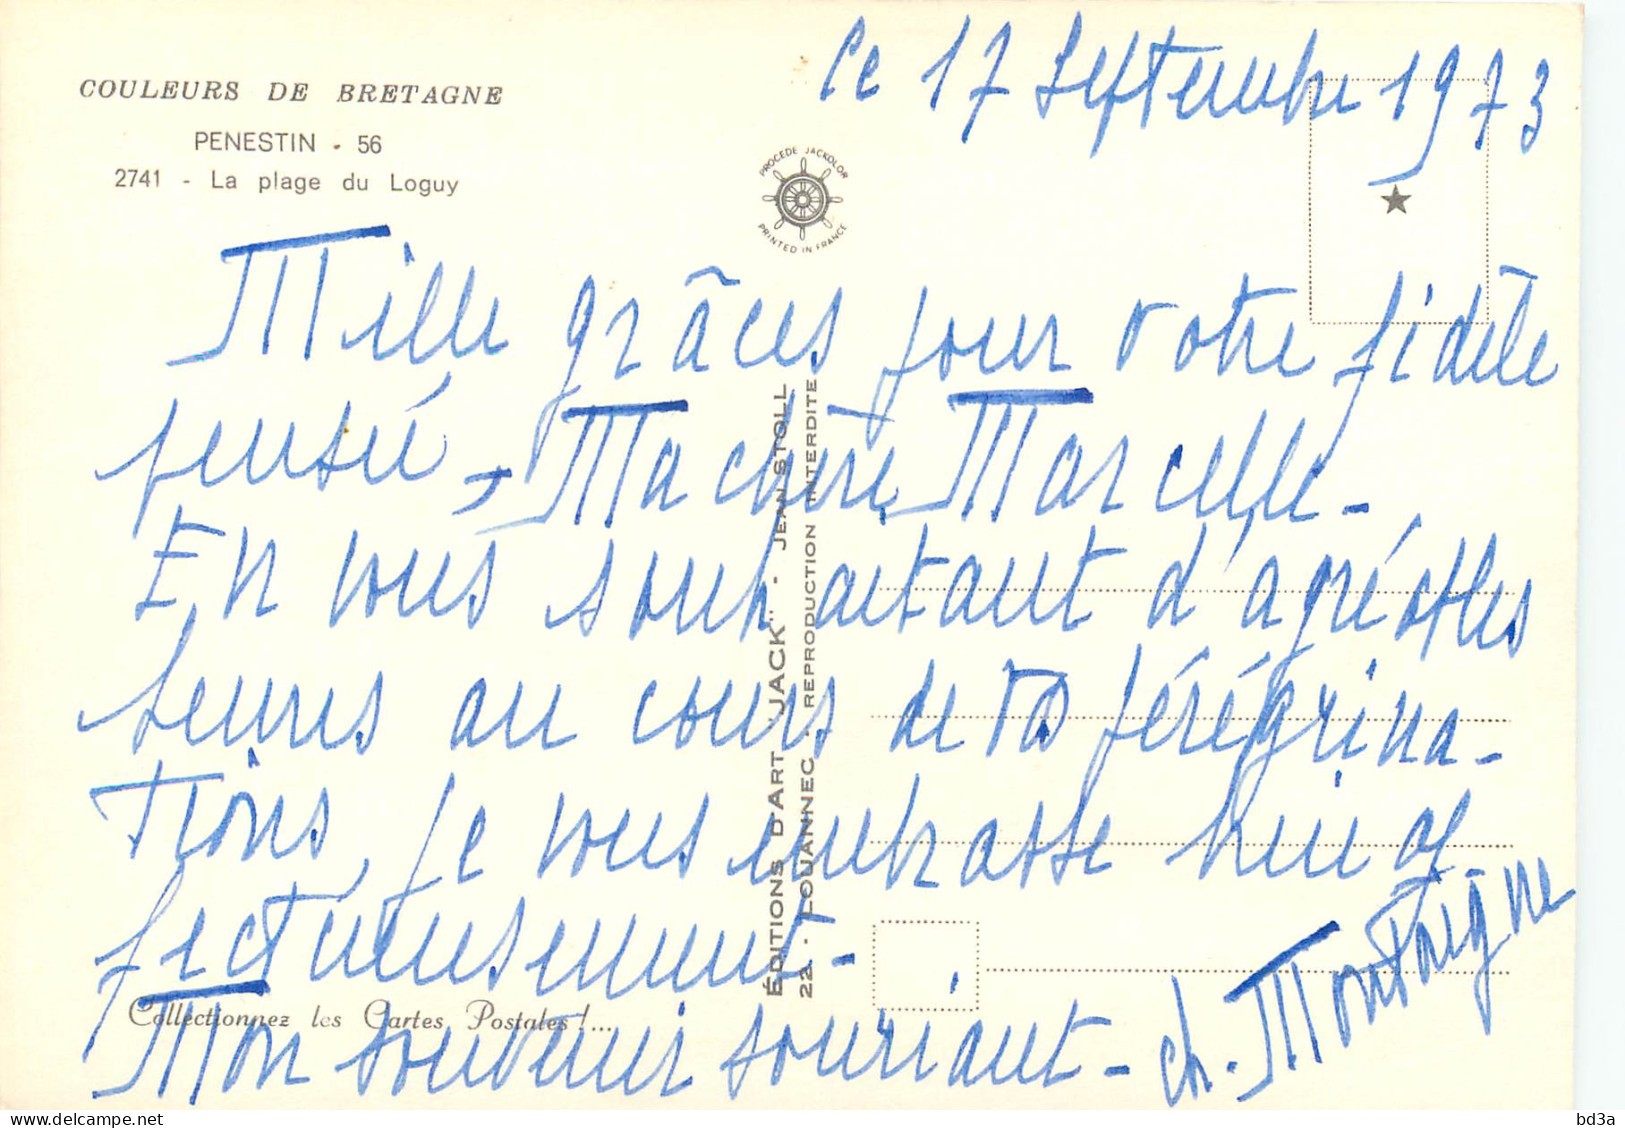 Le 17 Septembre 1973
COULEURS DE BRETAGNE
PENESTIN - 56
2741 - La plage du Loguy
PROCEDE JACKOLOR
PRINTED IN FRANCE
Mille grâces pour votre fidèle
pensée, Ma chère Marcelle-
En vous souhaitant d'agréables
heures au cours de vos pérégrina-
tions, je vous embrasse bien af
fectueusement-
Mon souvenir souriant - ch. Montaigne
Collectionnez les Cartes Postales !...
ÉDITIONS D'ART "JACK" - JEAN STOLL
22 - LOUANNEC - REPRODUCTION INTERDITE
bd3a